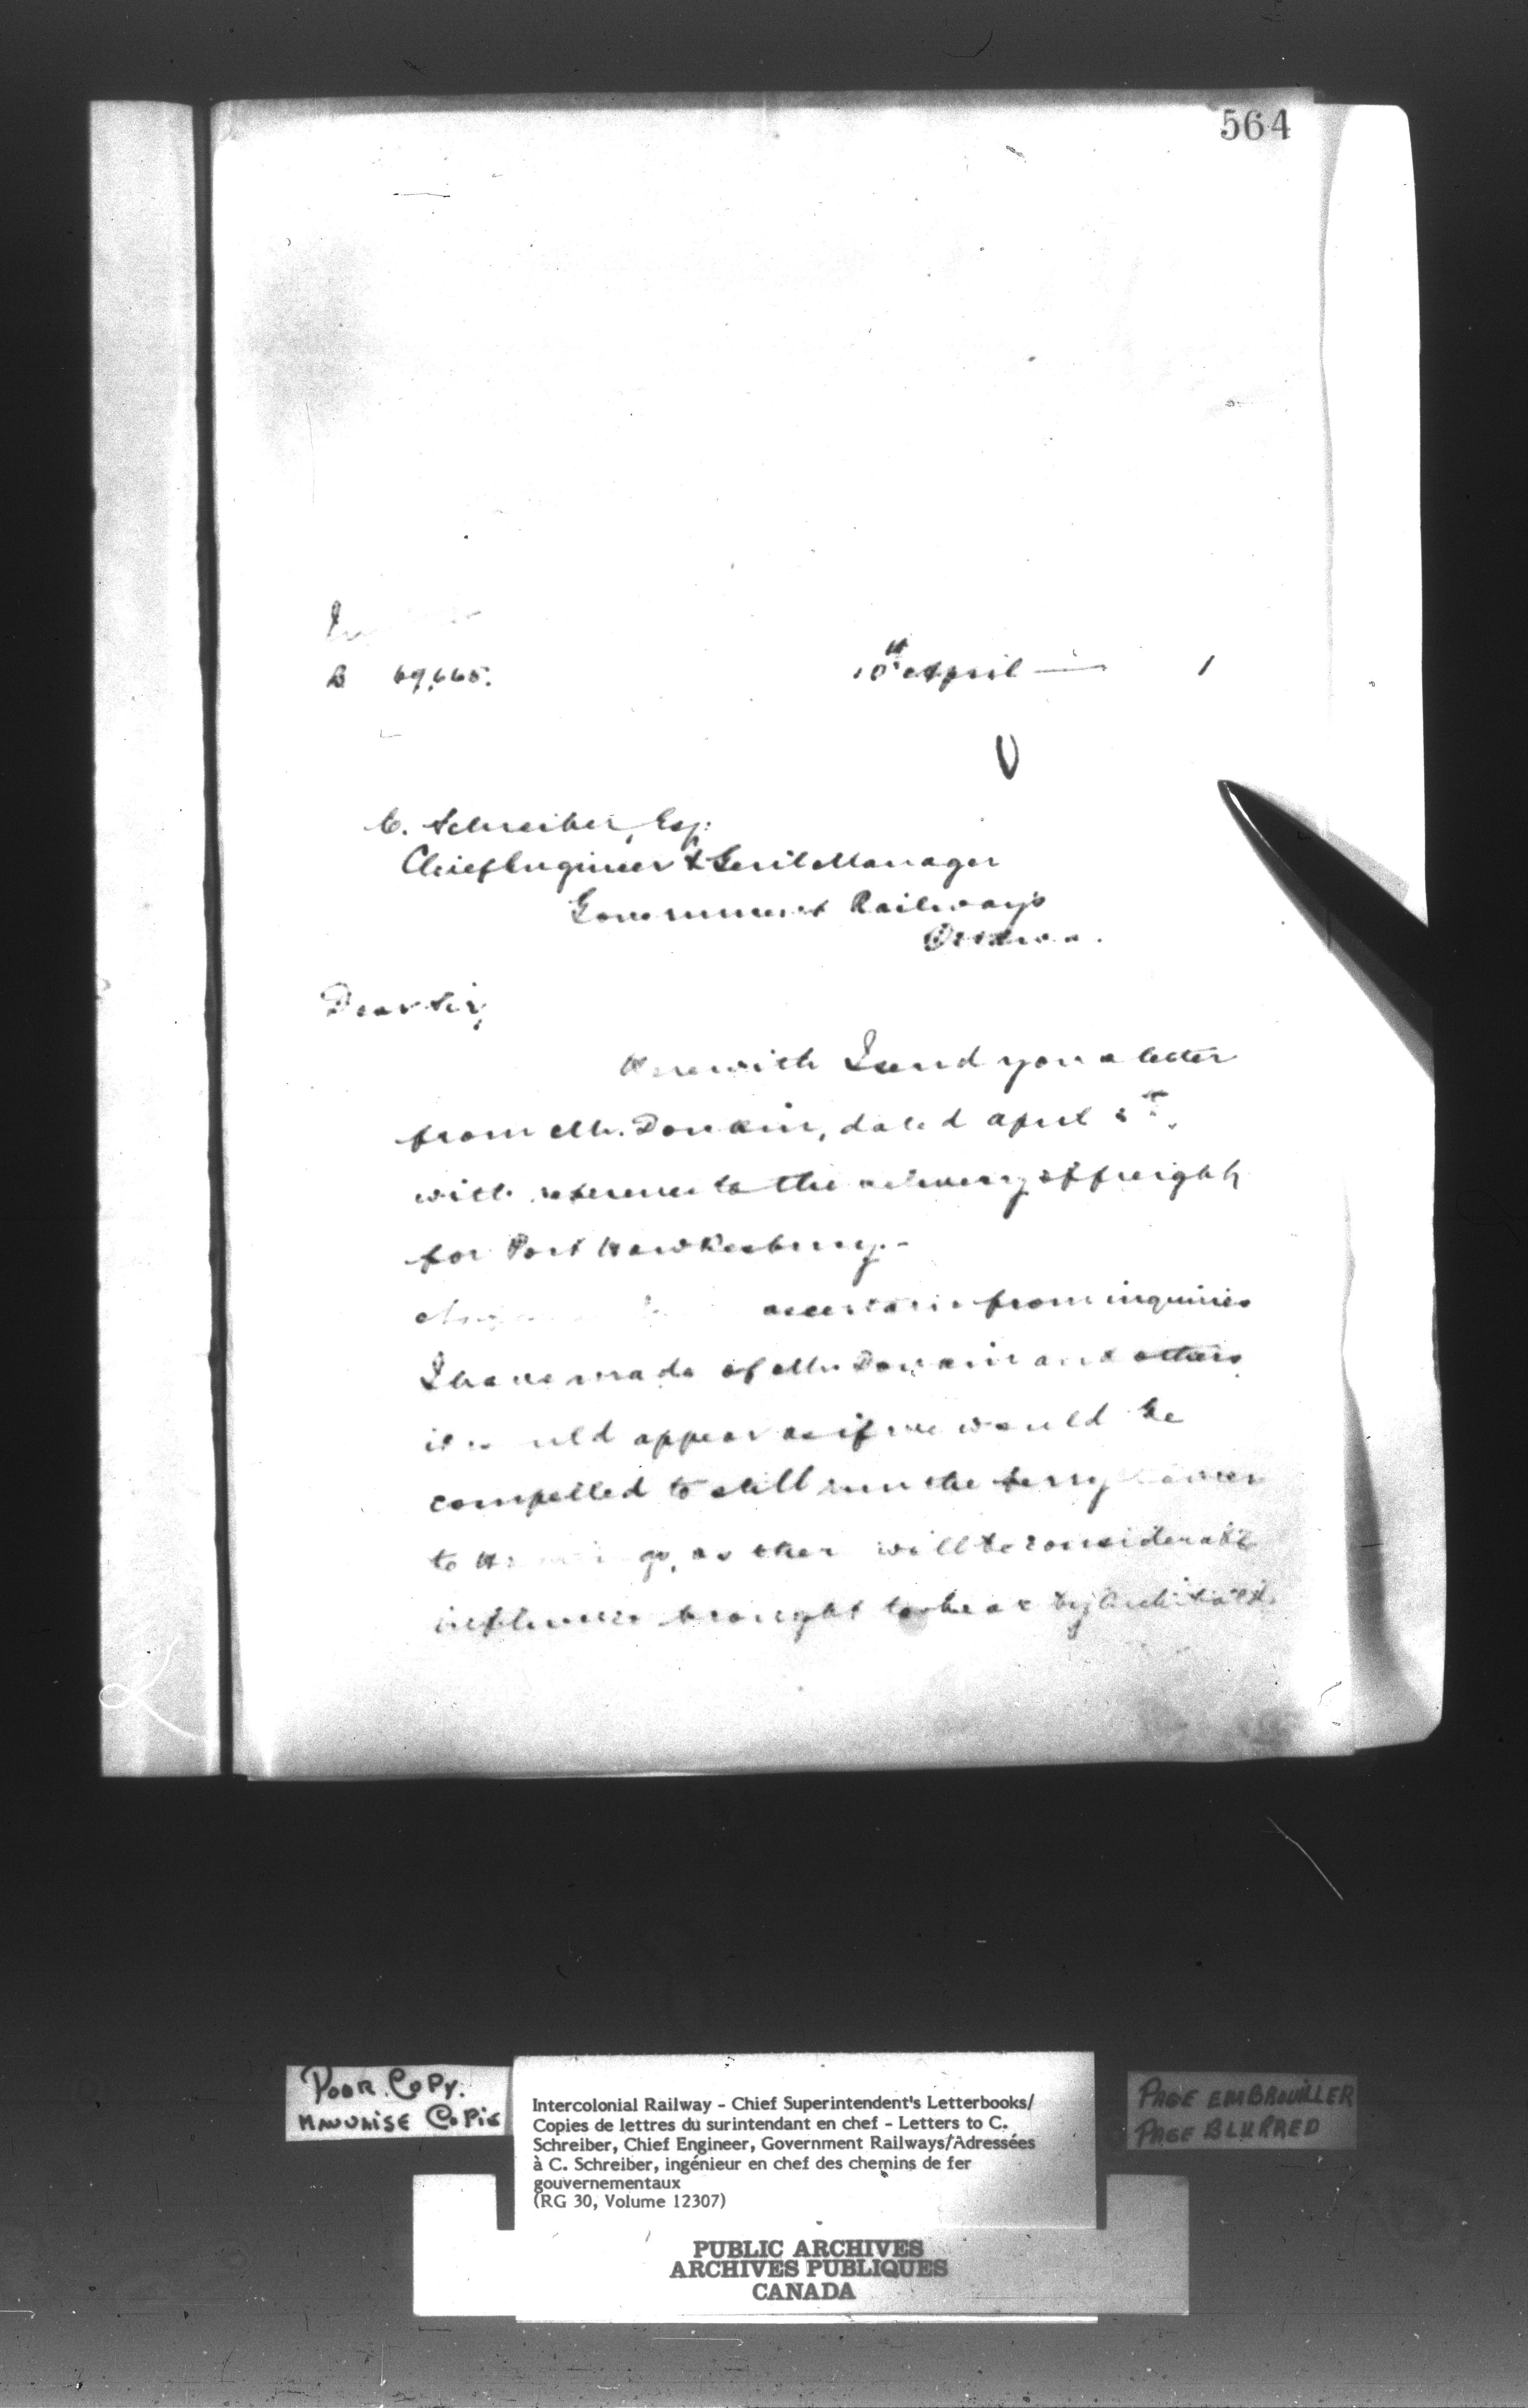 564
B 69,665.
10th April — 1
C. Schreiber, Esq:
Chief Engineer & Genl Manager
Government Railways
Ottawa.
Dear Sir,
Herewith I send you a letter
from Mr. Donkin, dated April
with reference to the delivery of freight
for Port Hawkesbury.-
ascertain from inquiries
I have made of Mr Donkin and others
it would appear as if we would be
compelled to still run the ferry
to as ther will be considerable
influence brought to bear by
POOR COPY.
MAUVAISE COPIE
Intercolonial Railway - Chief Superintendent's Letterbooks/
Copies de lettres du surintendant en chef - Letters to C.
Schreiber, Chief Engineer, Government Railways/Adressées
à C. Schreiber, ingénieur en chef des chemins de fer
gouvernementaux
(RG 30, Volume 12307)
PAGE EMBROUILLER
PAGE BLURRED
PUBLIC ARCHIVES
ARCHIVES PUBLIQUES
CANADA